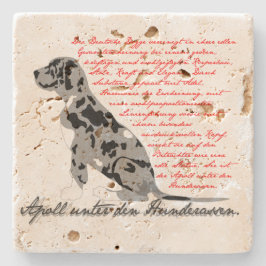 Die Deutsche Dogge vereinigt in ihrer edlen
Gesamterscheinung bei einem großen,
kräftigen und wohlgefügten Körperbau,
Stolz, Kraft und Eleganz. Durch
Substanz gepaart mit Adel,
Harmonie der Erscheinung, mit
einer wohlproportionierten
Linienführung sowie mit
ihrem besonders
ausdrucksvollen Kopf
wirkt sie auf den
Betrachter wie eine
edle Statue. Sie ist
der Apoll unter den
Hunderassen.
Apoll unter den Hunderassen.